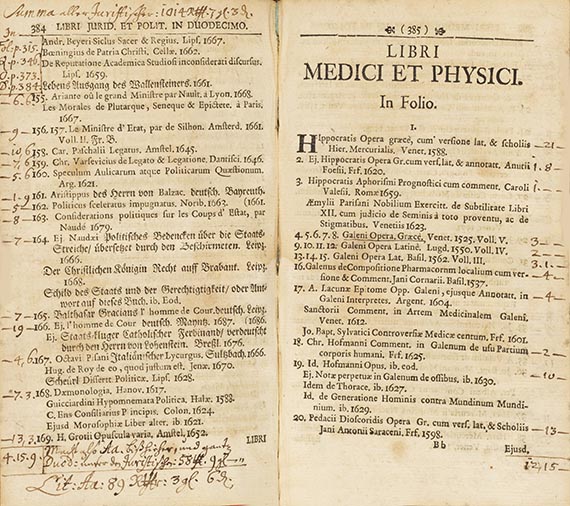 Summa aller Juristischer: 1014 Rtl. 7 gl. 3 d.
384 LIBRI JURID. ET POLIT. IN DUODECIMO.
Fol. p. 315.
Q. p. 346.
O. p. 373.
D. p. 384.
Andr. Beyeri Siclus Sacer & Regius. Lips. 1667.
Bœningius de Patria Christi, Cellæ, 1667.
De Reputatione Academica Studiosi inconsiderati discursus.
Lips. 1659.
Lebens Ausgang des Wallensteiners. 1661.
- 6. 6 155. Arianto où le grand Ministre par Nault. à Lyon. 1668.
Les Morales de Plutarque, Seneque & Epictete. à Paris,
1667.
- 9 - 156. 157. Le Ministre d'Etat, par de Silhon. Amsterd. 1661.
Voll. II. Fr. B.
158. Car. Paschalii Legatus, Amstel. 1645.
159. Chr. Varsevicius de Legato & Legatione, Dantisci. 1646.
160. Speculum Aulicarum atque Politicarum Quæstionum.
Arg. 1621.
161. Aristippus des Herrn von Balzac. deutsch. Bayreuth.
162. Politicus sceleratus impugnatus, Norib. 1663. (1661.
163. Considerations politiques sur les Coups d'Estat, par
Naudé 1679.
- 7 - 164. Ej Naudæi Politisches Bedencken über die Staats-
Streiche/übersetzet durch den Beschirmeten. Leipz.
1666.
Der Christlichen Königin Recht auff Brabant. Leipz.
1668.
Schild des Staats und der Gerechtigkeit/ oder Ant-
wort auf dieses Buch, ib. Eod.
- 7 - 165. Balthasar Gracians l'homme de Cour, deutsch. Leipz.
- 19 - 166. Ej. l'homme de Cour deutsch. Mayntz. 1687. (1686.
Ej. Staats-kluger Catholischer Ferdinand/ verdeutscht
durch den Herrn von Lohenstein. Breßl. 1676.
- 4, 6 167. Octavi Pisani Italiänischer Lycurgus. Sultzbach. 1666.
Hug. de Roy de eo, quod justum est. Jenæ. 1670.
Scheurl Dissert. Politicæ, Lips. 1628.
- 7. 3. 168. Dæmonologia, Hanov. 1617.
Guicciardini Hypomnemata Politica, Halæ. 1588.
C, Ens Consiliarius Principis. Colon. 1624.
Ejusd Morosophiæ Liber alter, ib. 1621.
- 13, 3 169. H, Grotii Opuscula varia, Amstel, 1652.
LIBRI
4. 15. 9.
(385)
LIBRI
MEDICI ET PHYSICI.
In Folio.
1.
Hippocratis Opera græcè, cum versione lat. & scholiis
Hier. Mercurialis. Venet. 1588.
2. Ej. Hippocratis Opera Gr. cum vers, lat, & annotatt. Anutii
Foesii. Frf. 1620.
3. Hippocratis Aphorismi Prognostici cum comment. Caroli
Valesii. Romæ 1659.
Æmylii Parisani Nobilium Exercitt. de Subtilitate Libri
XII. cum judicio de Seminis à toto proventu, ac de
Stigmatibus, Venetiis 1623.
4. 5. 6. 7. 8. Galeni Opera, Græcè, Venet. 1525. Voll. V.
9. 10. 11. 12. Galeni Opera Latinè. Lugd. 1550. Voll. IV.
13. 14. 15. Galeni Opera Lat. Basil. 1562. Voll. III.
16. Galenus de Compositione Pharmacorum localium cum ver-
sione & Comment. Jani Cornarii. Basil. 1537.
17. A. Lacunæ Epitome Opp. Galeni, ejusque Annotatt. in
Galeni Interpretes. Argent. 1604.
Sanctorii Comment. in Artem Medicinalem Galeni.
Venet. 1612.
Jo. Bapt. Sylvatici Controversiæ Medicæ centum. Frf. 1601.
18. Chr. Hofmanni Comment. in Galenum de usu Partium
corporis humani. Frf. 1625.
19. Id. Hofmanni Opus. ib. eod.
Ej. Notæ perpetuæ in Galenum de ossibus. ib. 1630.
Idem de Thorace. ib. 1627.
Id. de Generatione Hominis contra Mundinum Mundi-
nium. ib. 1629.
20. Pedacii Dioscoridis Opera Gr. cum vers. lat, & Scholiis
Jani Antonii Saraceni. Frf. 1598.
B b
Ejusd,
12, 15